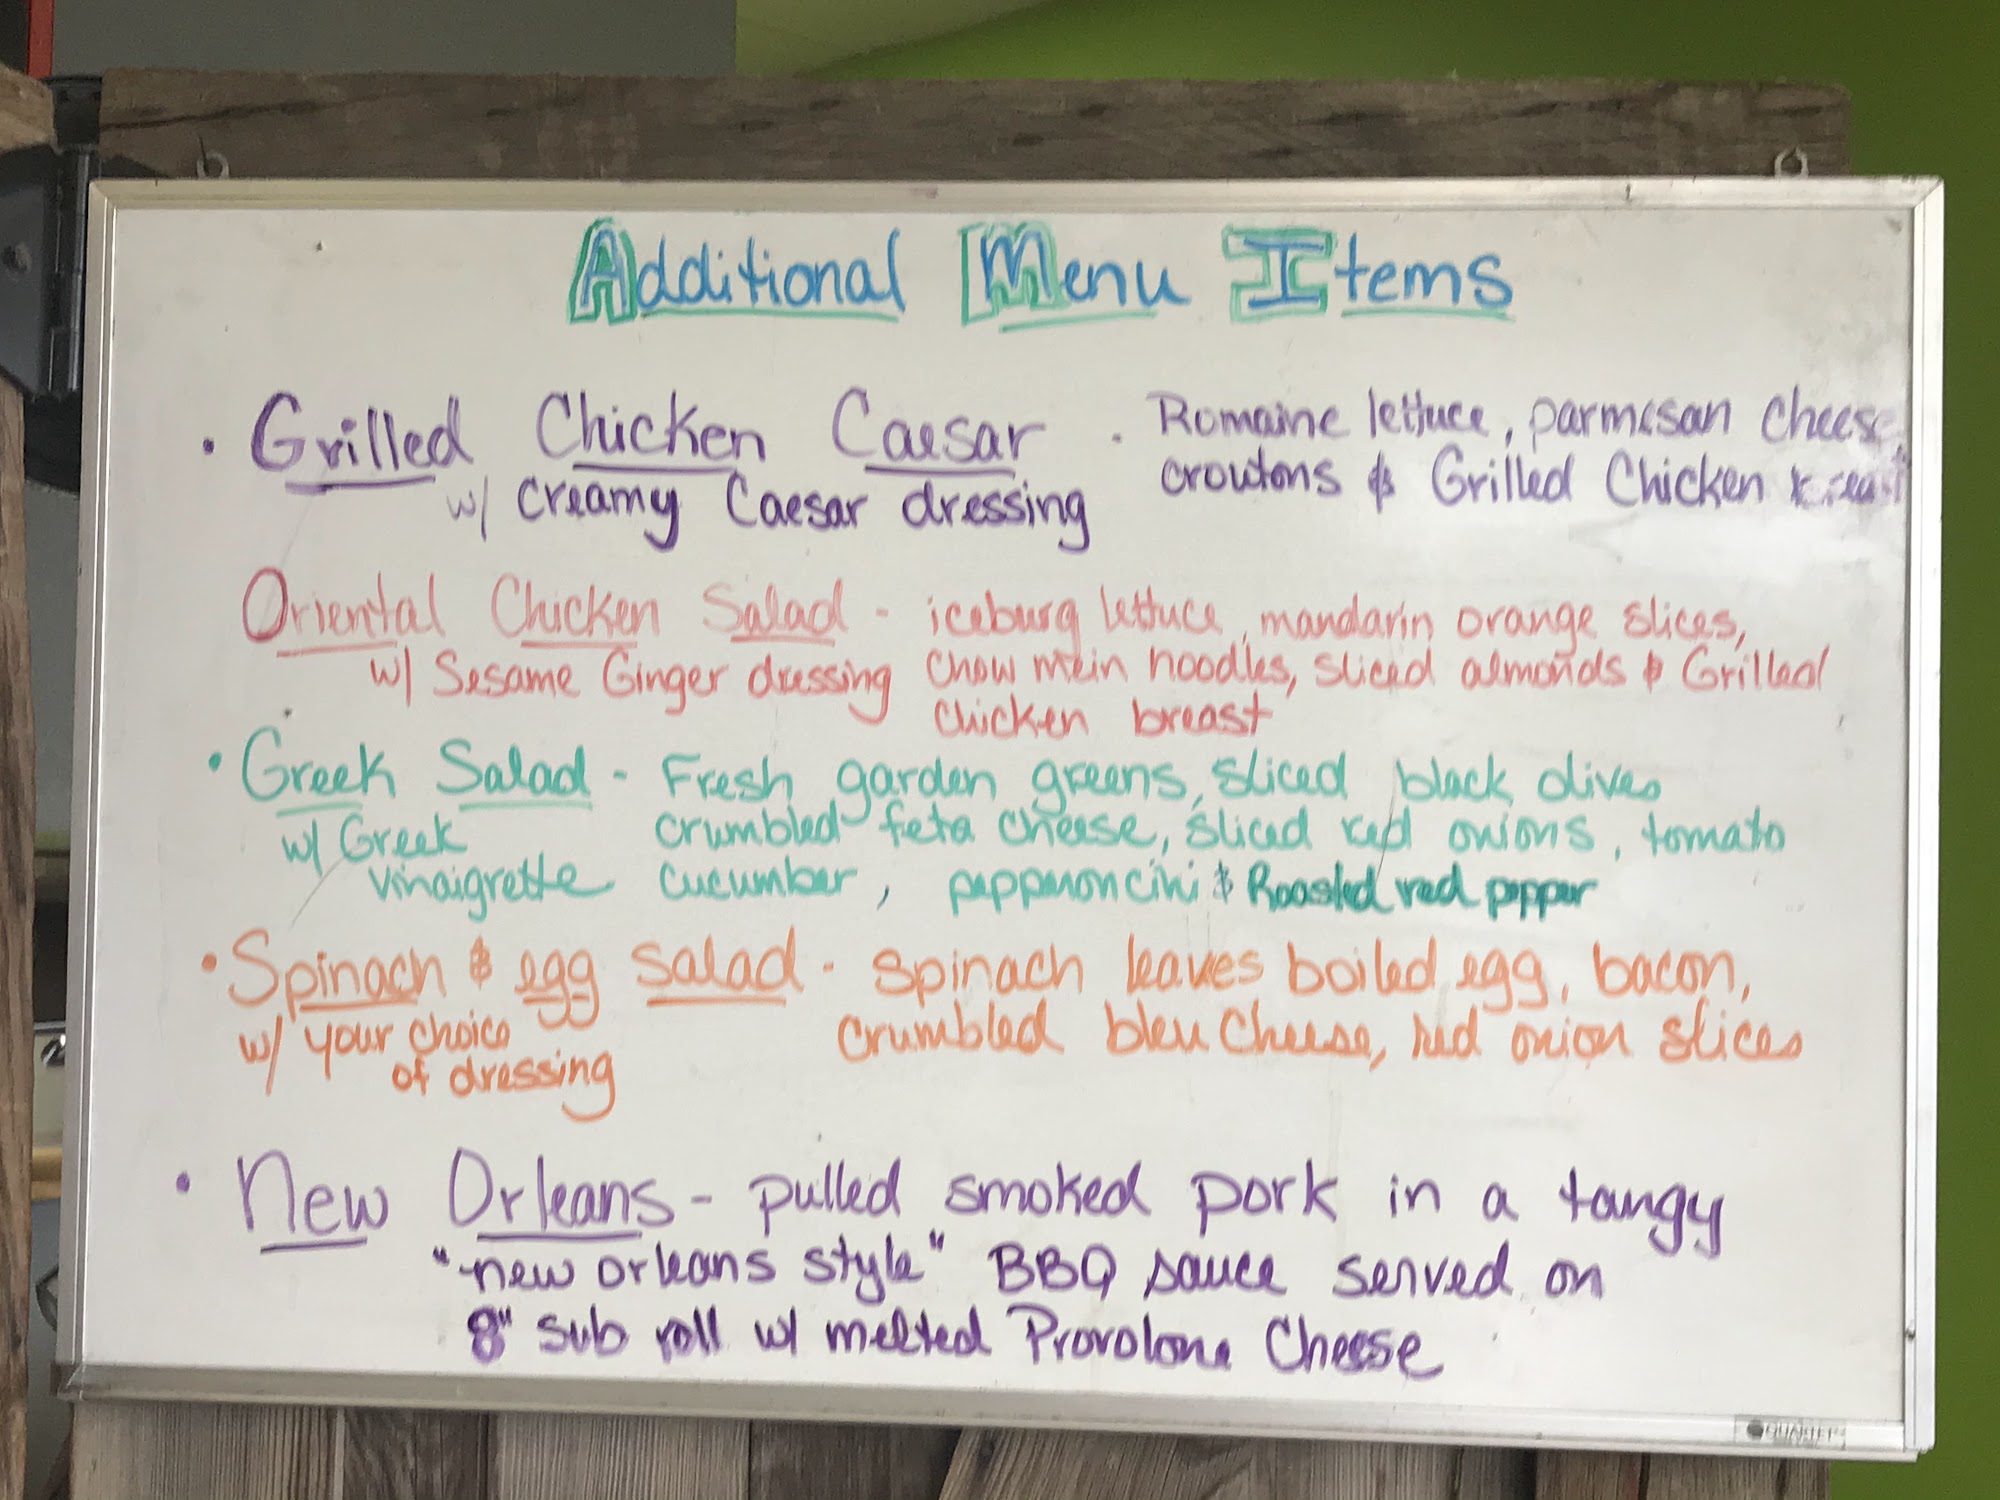 Additional Menu Items
• Grilled Chicken Caesar - Romaine lettuce, parmesan Cheese
w/ Creamy Caesar dressing croutons & Grilled Chicken breast
Oriental Chicken Salad - iceburg lettuce, mandarin orange slices,
w/ Sesame Ginger dressing Chow mein noodles, sliced almonds & Grilled
chicken breast
• Greek Salad - Fresh garden greens, sliced black olives
w/ Greek crumbled feta cheese, sliced red onions, tomato
vinaigrette cucumber, pepperoncini & Roasted red pepper
• Spinach & egg salad - spinach leaves boiled egg, bacon,
w/ your choice crumbled bleu cheese, red onion slices
of dressing
• New Orleans - pulled smoked pork in a tangy
"new orleans style" BBQ sauce served on
8" sub roll w/ melted Provolone Cheese
QUARTET